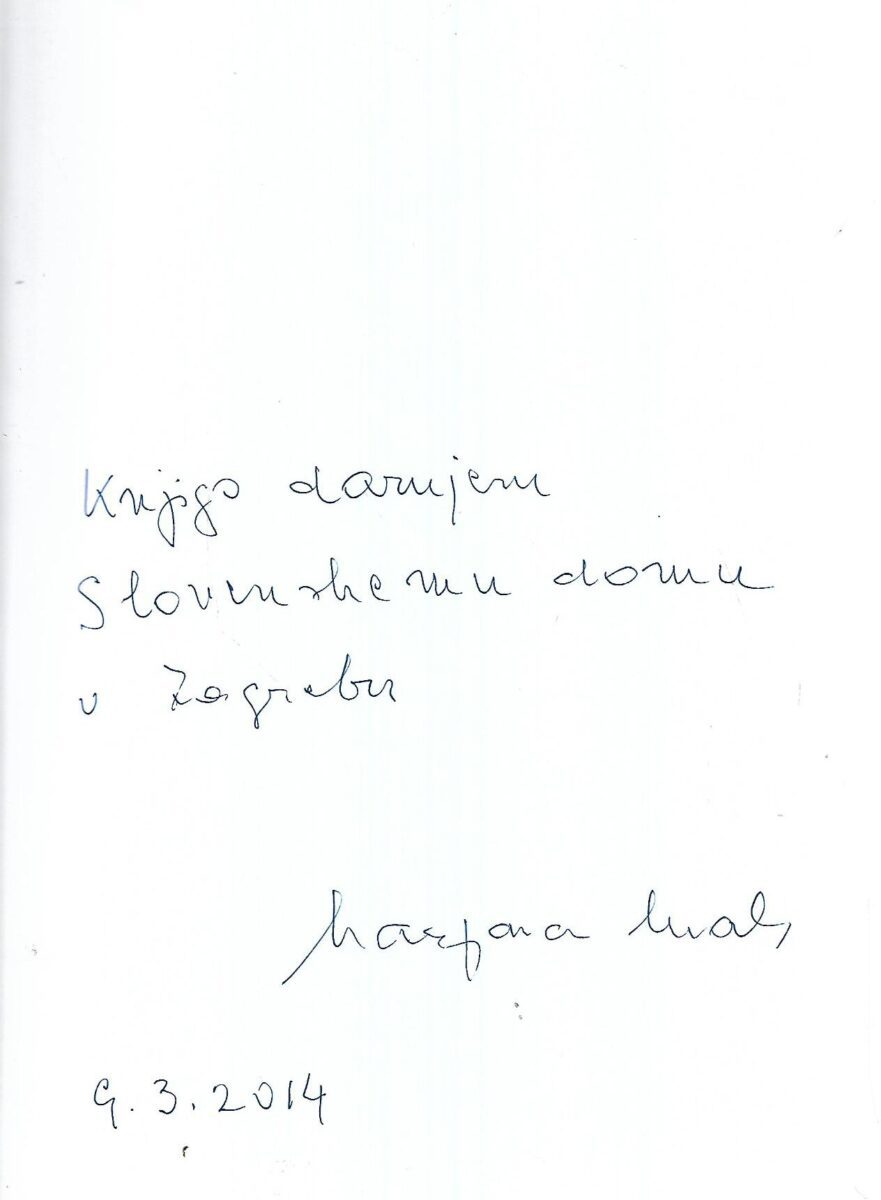 Knjigo darujem
Slovenskemu domu
v Zagrebu
Marjana
9.3.2014